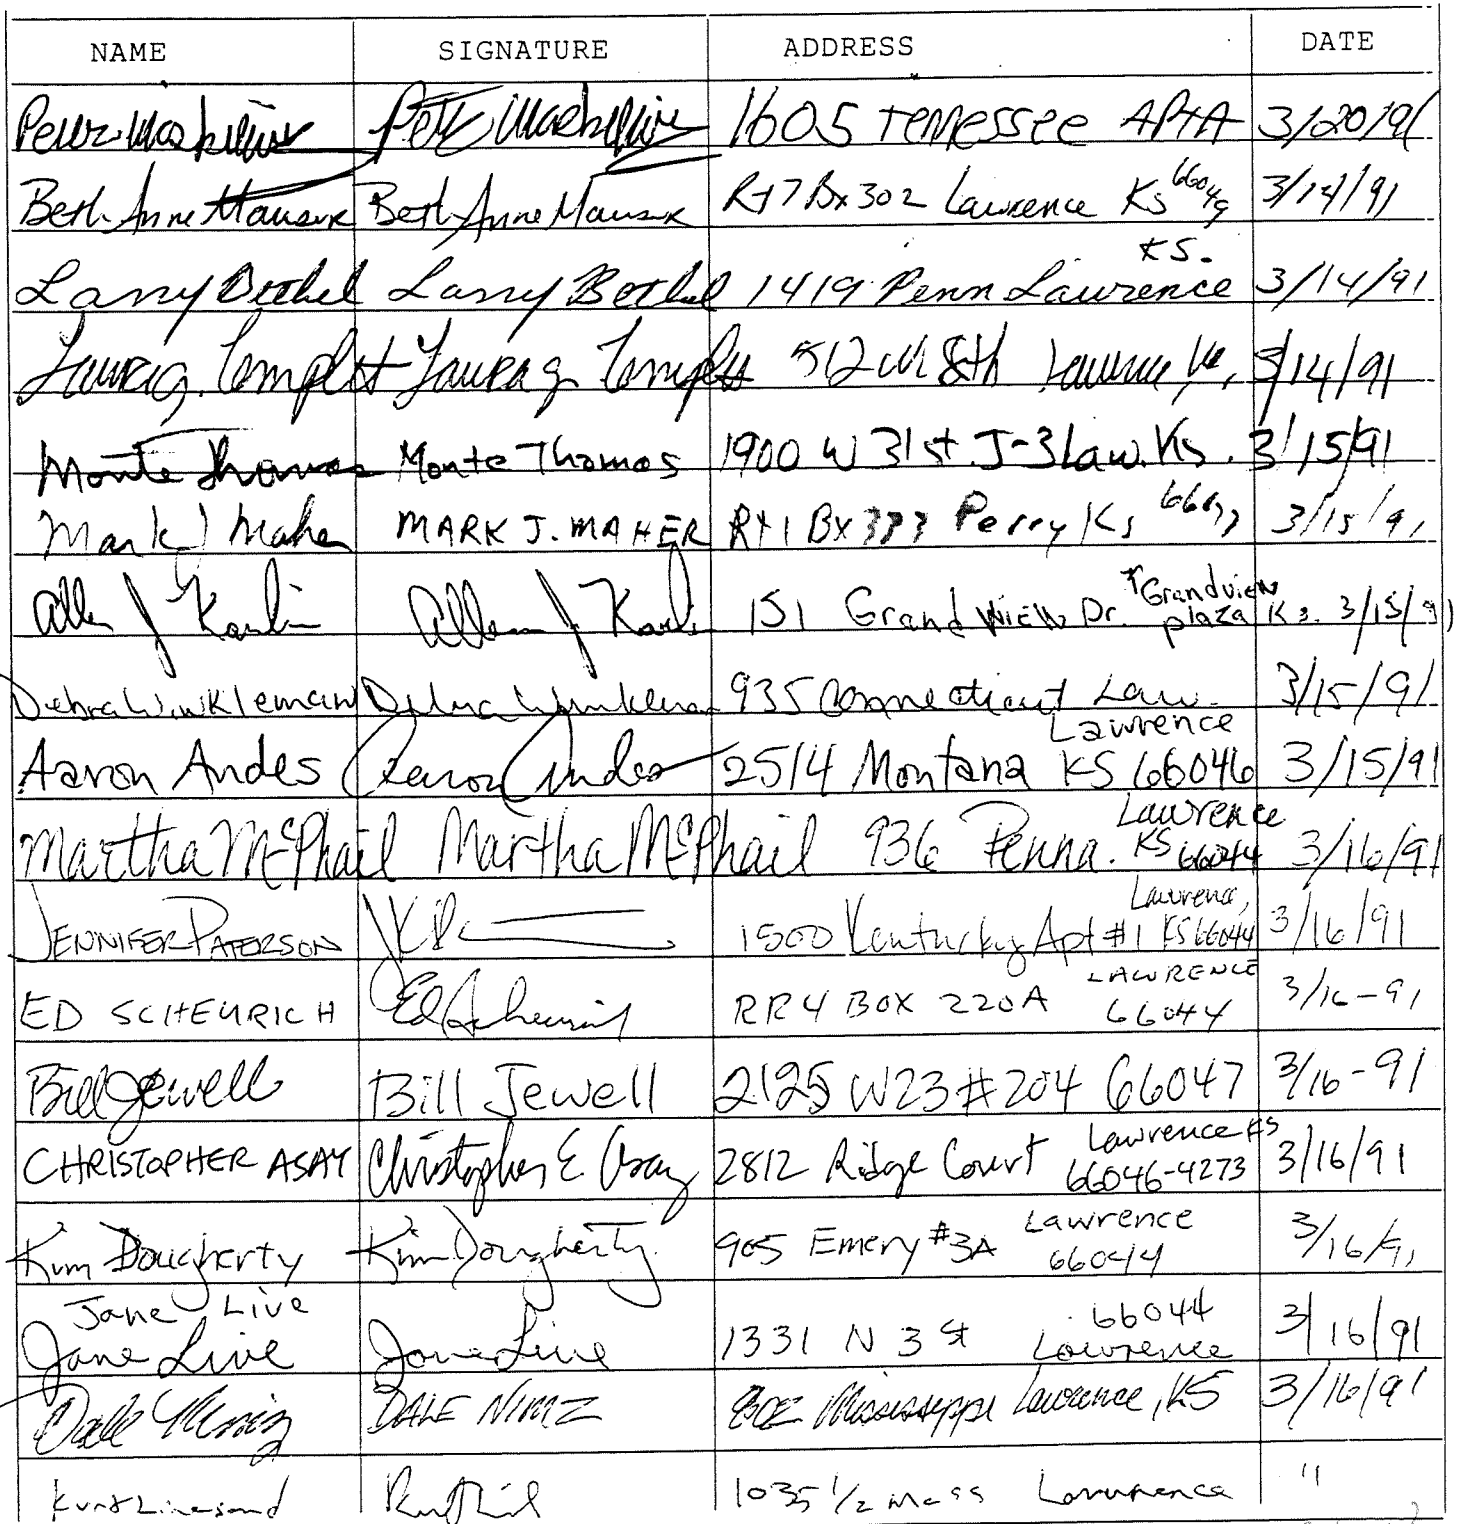 NAME SIGNATURE ADDRESS DATE
1605 Tennessee Apt A 3/20/91
Beth Anne Mauser Beth Anne Mauser Rt 7 Bx 302 Lawrence Ks 66049 3/14/91
Larry Bethel Larry Bethel 1419 Penn Lawrence KS. 3/14/91
Laura g. Laura g. 512 W 8th Lawrence 3/14/91
Monte Thomas Monte Thomas 1900 W 31st J-3 Law. Ks. 3/15/91
Mark J Maher MARK J. MAHER Rt 1 Bx 383 Perry Ks 3/15/91
Allen J Karlin Allen J Karlin 151 Grand View Dr. Grandview plaza Ks. 3/15/91
Debra Winkleman Debra Winkleman 935 Connecticut Law. 3/15/91
Aaron Andes Aaron Andes 2514 Montana Lawrence KS 66046 3/15/91
Martha McPhail Martha McPhail 936 Penna. Lawrence KS 66044 3/16/91
JENNIFER PATERSON 1500 Kentucky Apt #1 Lawrence, KS 66044 3/16/91
ED SCHEURICH Ed Scheurich RR4 BOX 220A LAWRENCE 66044 3/16-91
Bill Jewell Bill Jewell 2125 W23 #204 66047 3/16-91
CHRISTOPHER ASAY Christopher E Asay 2812 Ridge Court Lawrence KS 66046-4273 3/16/91
Kim Dougherty Kim Dougherty 905 Emery #3A Lawrence 66044 3/16/91
Jane Live
Jane Live Jane Live 1331 N 3 St 66044 Lawrence 3/16/91
Dale Nimz DALE NIMZ 802 Mississippi Lawrence, KS 3/16/91
Kurt 1035 1/2 Mass Lawrence "